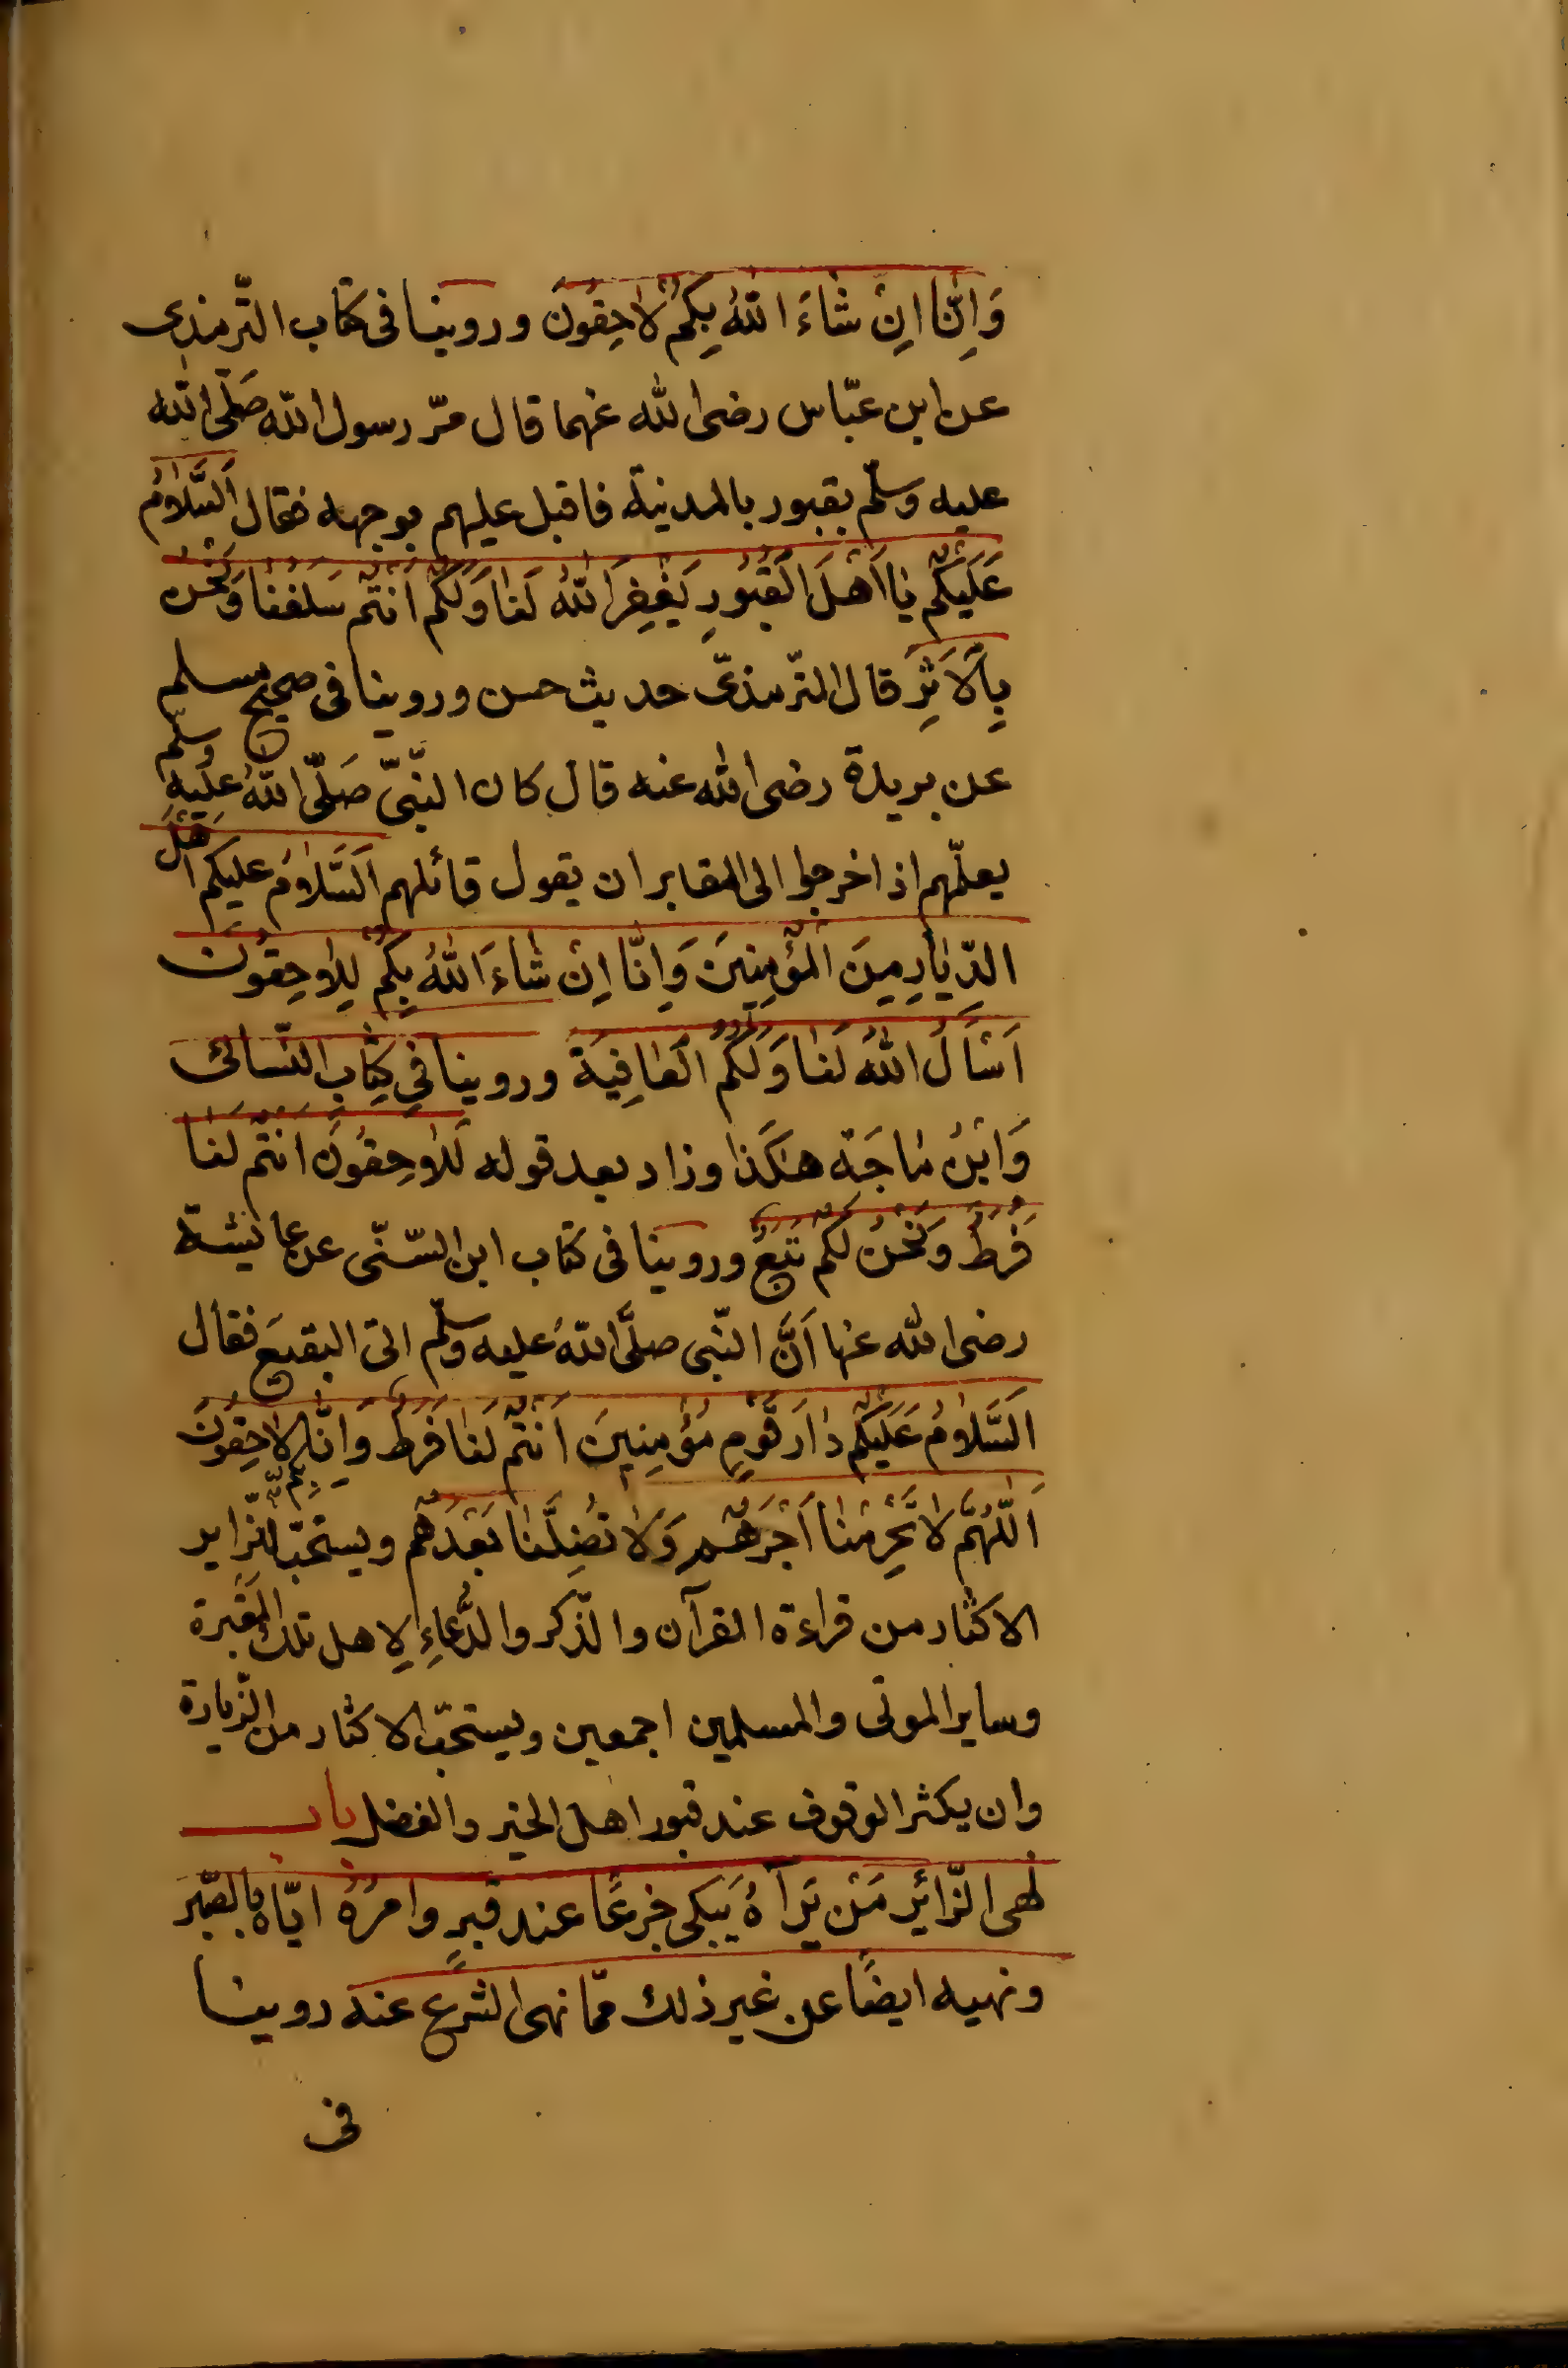 وَاِنَّا اِنْ شَاءَ اللّٰهُ بِكُمْ لَاحِقُونَ وروينا فى كتاب التّرمذى
عن ابن عبّاس رضى الله عنهما قال مرّ رسول اللّه صَلّى اللّه
عليه وسلّم بقبور بالمدينة فاقبل عليهم بوجهه فقال اَلسَّلَامُ
عَلَيْكُمْ يَا اَهْلَ الْقُبُورِ يَغْفِرُ اللّٰهُ لَنَا وَلَكُمْ اَنْتُمْ سَلَفُنَا وَنَحْنُ
بِالْاَثَرِ قال التّرمذىّ حديث حسن وروينا فى صحيح مسلم
عن بريدة رضى الله عنه قال كان النّبىّ صَلّى اللّهُ عليه وسلّم
يعلّمهم اذا خرجوا الى المقابر ان يقول قائلهم اَلسَّلَامُ عليكم اَهْلَ
الدِّيَارِ مِنَ الْمُؤْمِنِينَ وَاِنَّا اِنْ شَاءَ اللّٰهُ بِكُمْ لَلَاحِقُونَ
اَسْاَلُ اللّٰهَ لَنَا وَلَكُمُ الْعَافِيَةَ وروينا فِى كِتَابِ النّسائى
وَابْنُ مَاجَةَ هٰكَذَا وزاد بعد قوله لَلَاحِقُونَ اَنْتُمْ لَنَا
فَرَطٌ وَنَحْنُ لَكُمْ تَبَعٌ وروينا فى كتاب ابن السّنّى عن عايشة
رضى اللّه عنها اَنَّ النّبى صلَّى اللّهُ عليه وسلّم اتى البقيعَ فقال
اَلسَّلَامُ عَلَيْكُمْ دَارَ قَوْمٍ مُؤْمِنِينَ اَنْتُمْ لَنَا فَرَطٌ وَاِنَّا بِكُمْ لَاحِقُونَ
اَللّٰهُمَّ لَا تَحْرِمْنَا اَجْرَهُمْ وَلَا تُضِلَّنَا بَعْدَهُمْ ويستحبّ للزّاير
الاكثار من قراءة القرآن والذّكر والدُّعاءِ لِاهل تلك المقبرة
وساير الموتى والمسلمين اجمعين ويستحبّ الاكثار من الزّيارة
وان يكثر الوقوف عند قبور اهل الخير والفضل باب
نهى الزّائر مَنْ يَرآهُ يَبكى جزعًا عند قبرٍ وامرُهُ ايّاهُ بالصّبر
ونهيه ايضًا عن غير ذلك ممّا نهى الشرع عنه روينا
فى